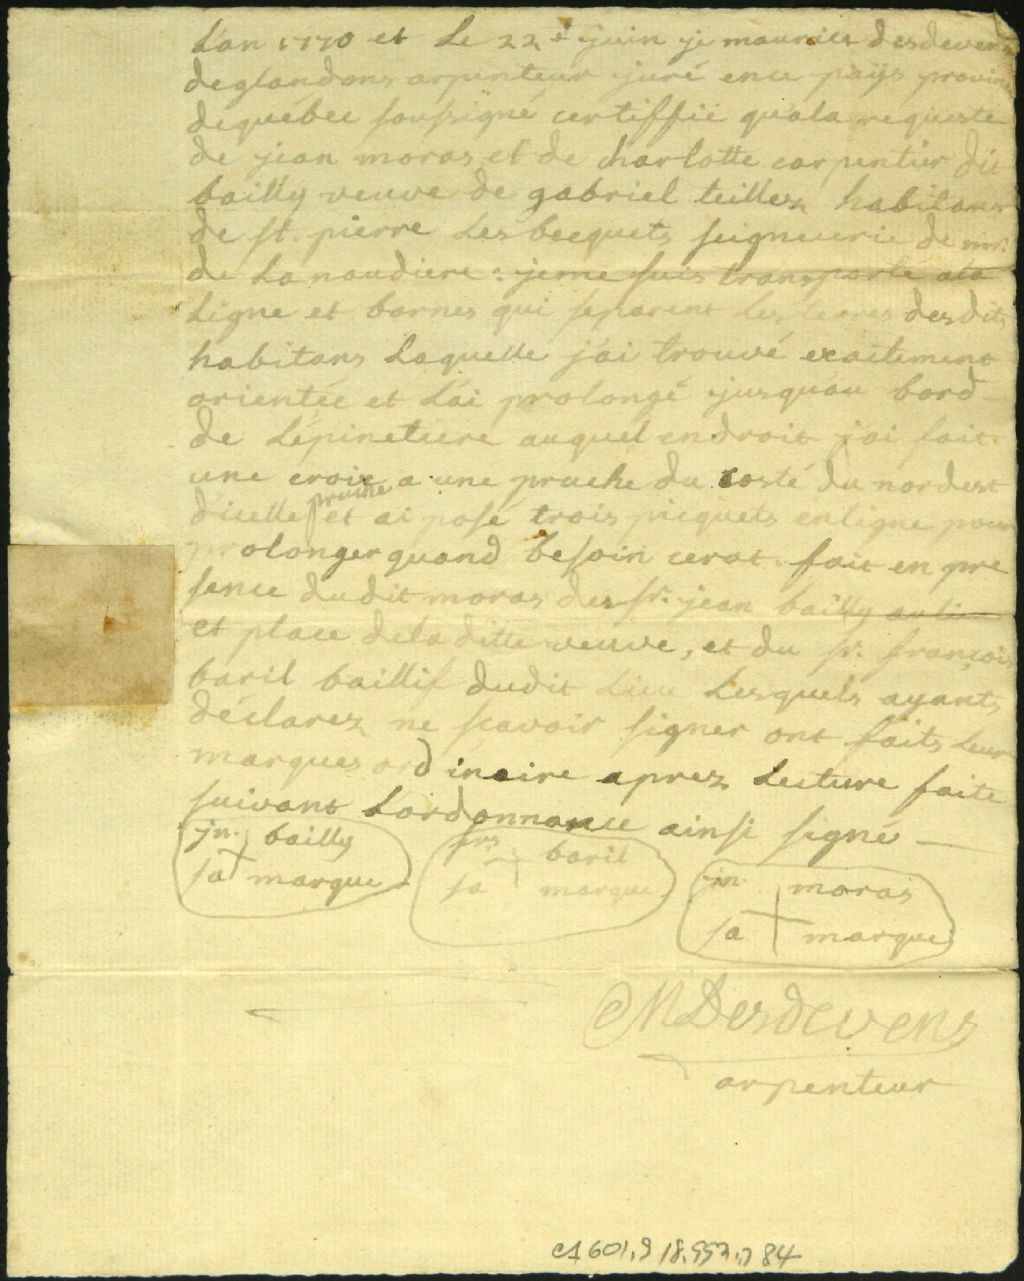 L'an 1770 et Le 22e juin je maurice desdevens
deglandons arpenteur juré ence païs provin
dequébec soussigné certiffie qu'ala requeste
de jean moras et de charlotte carpentier dit
bailly veuve de gabriel teillez habitans
de st. pierre Les becquets seigneurie de mr.
de Lanaudiere : jeme suis transporté ala
Ligne et bornes qui separent Les terres desdits
habitans Laquelle j'ai trouvé exaitement
orientée et L'ai prolongé jusqu'au bord
de L'épinetiere auquel endroit j'ai fait
une croix a une pruche du costé du nordest
d'icelle pruche et ai posé trois picquets enligne pour
prolonger quand besoin cerat. fait en pre
sence dudit moras des sr. jean bailly au lieu
et place dela ditte veuve, et du sr. françois
baril baillif dudit Lieu Lesquels ayants
déclarez ne scavoir signer ont faits Leur
marques ordinaire aprez Lecture faite
suivant L'ordonnance ainsi signé
jn. + bailly
sa marque
frs + baril
sa marque
jn. + moras
sa marque
MDesdevens
arpenteur
C1 601,9 18,557,784